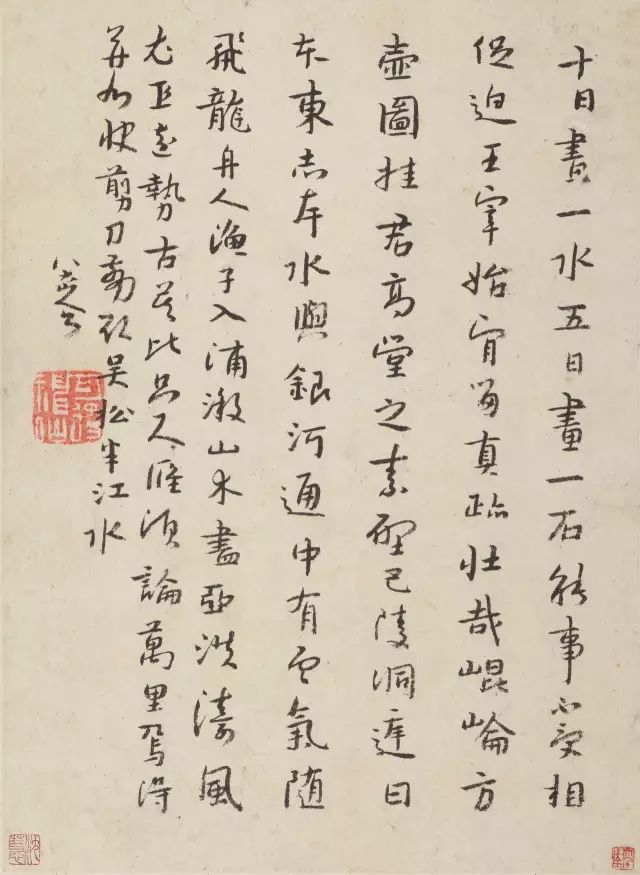 十日畫一水五日畫一石能事不受相
促迫王宰始肯留真跡壯哉崐崘方
壺圖挂君高堂之素壁巴陵洞庭日
本東赤岸水與銀河通中有雲氣隨
飛龍舟人漁子入浦漵山木盡亞洪濤風
尤工遠勢古莫比咫尺應須論萬里焉得
并州快剪刀剪取吴松半江水
八大山人